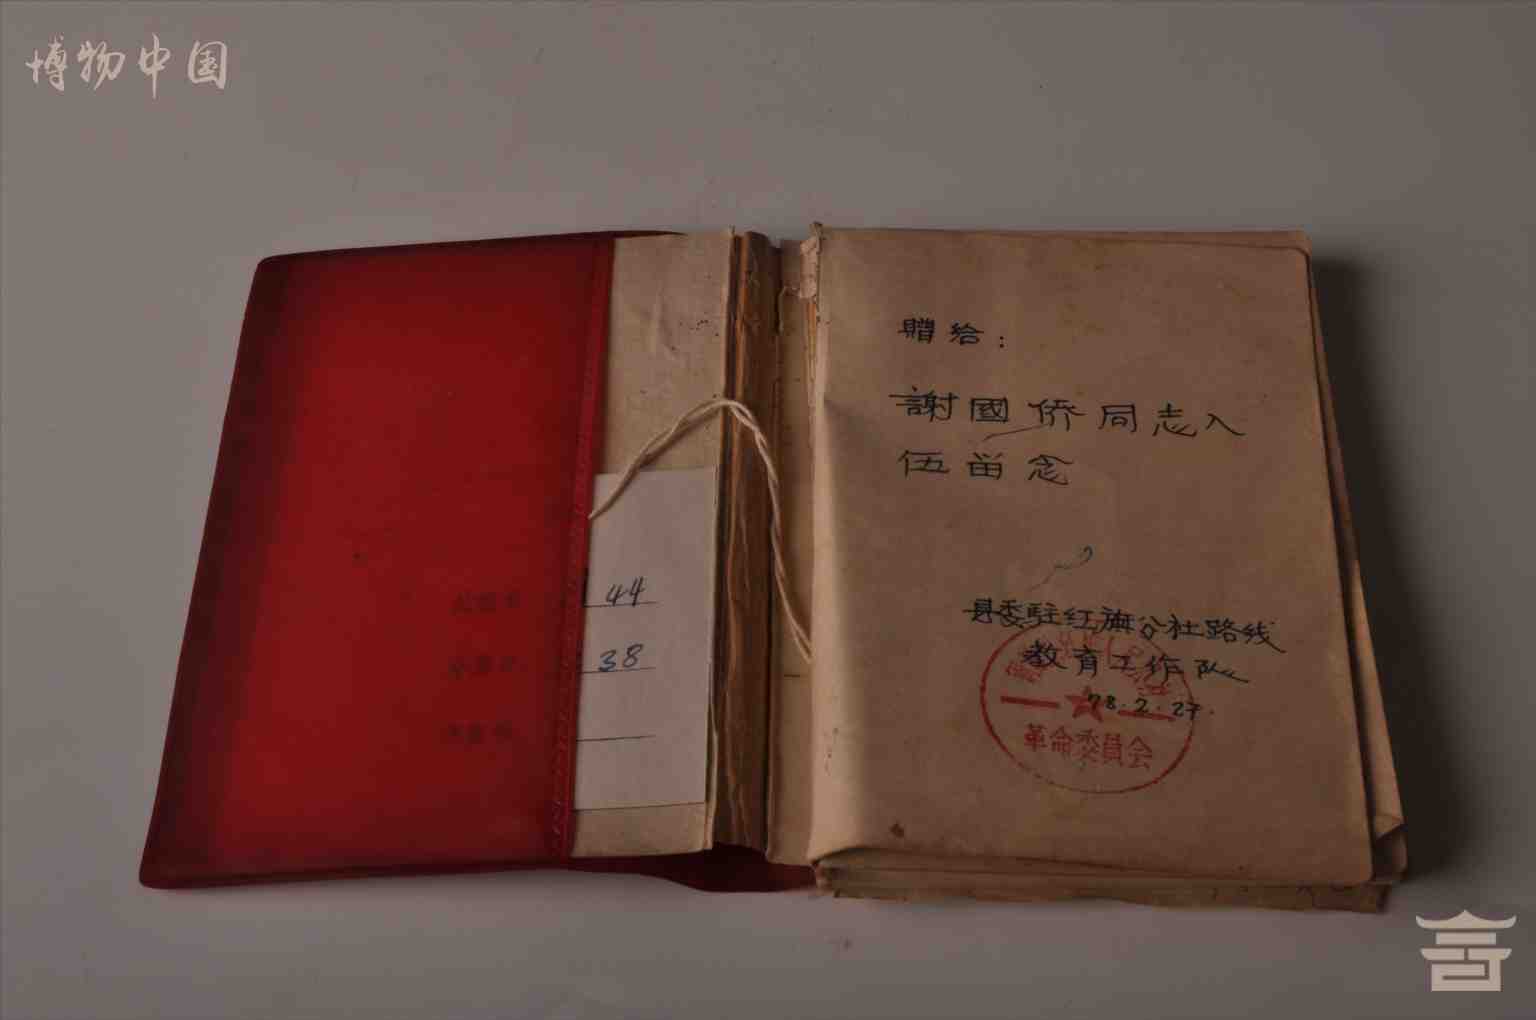 博物中国
44
38
贈给：
謝國侨同志入
伍畄念
县委驻红旗公社路线
教育工作队
78.2.27.
革命委員会